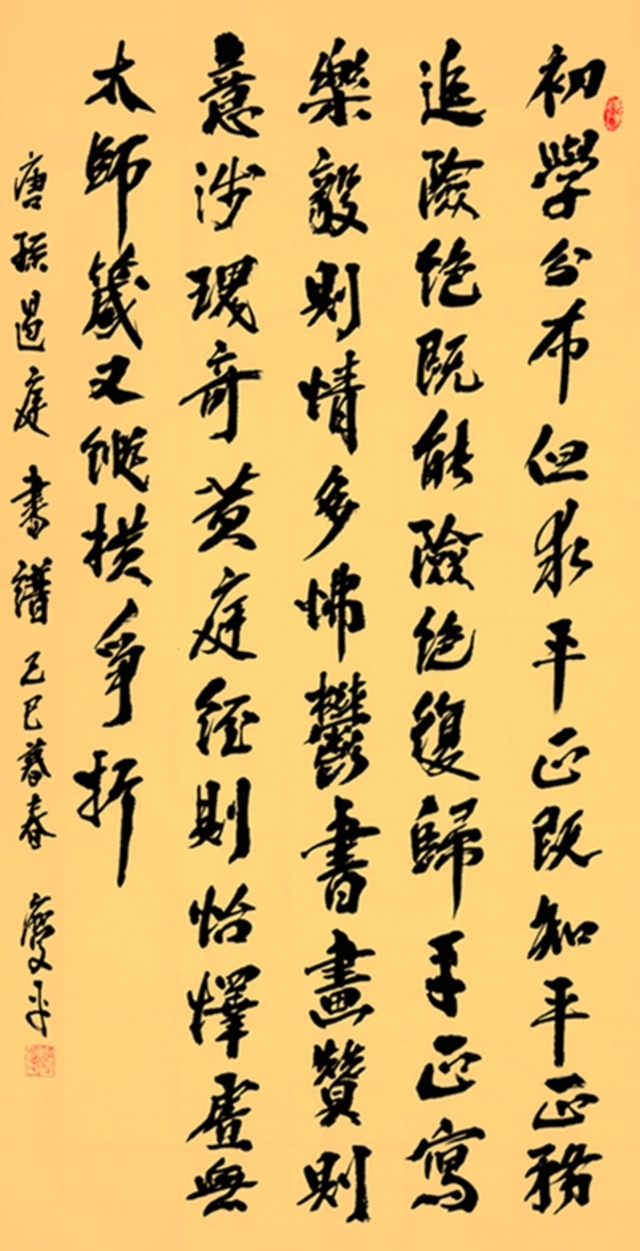 初學分布但求平正既知平正務
追險絕既能險絕復歸平正寫
樂毅則情多怫鬱書畫贊則
意涉瑰奇黃庭經則怡懌虛無
太師箴又縱橫爭折
唐孫過庭書譜己巳暮春